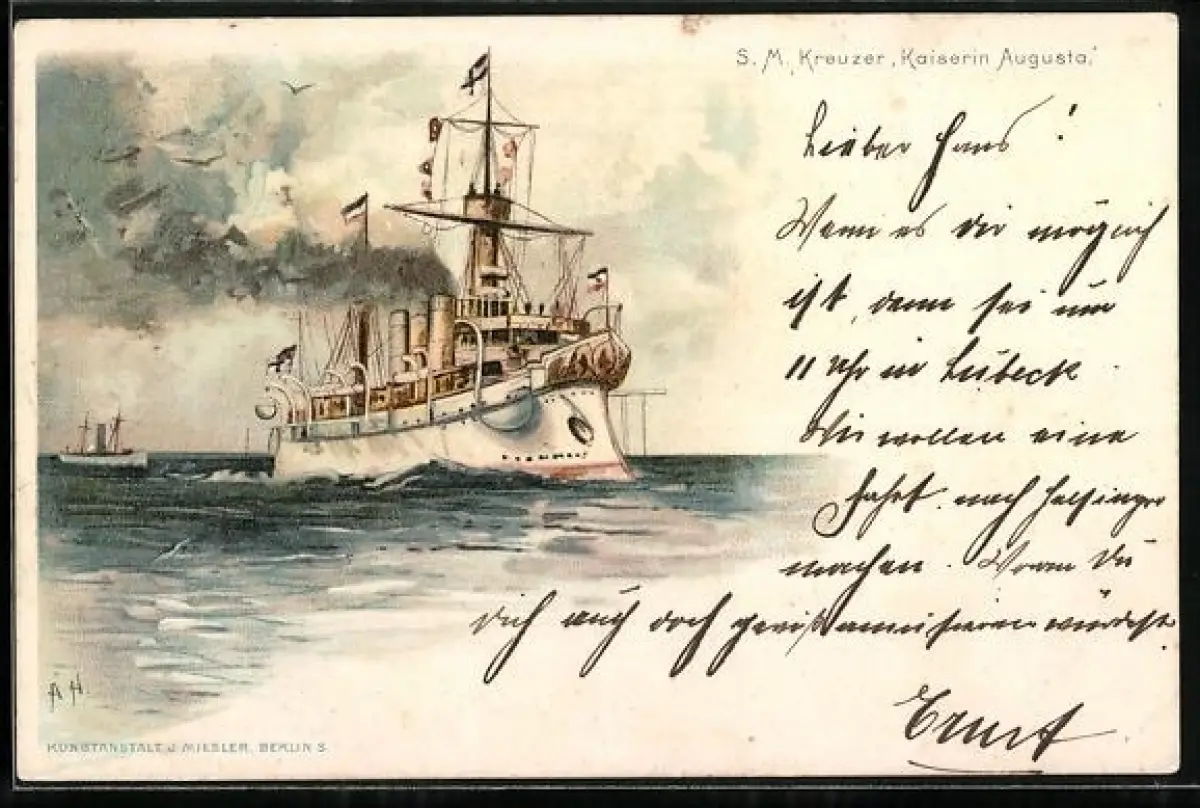 S. M. Kreuzer „Kaiserin Augusta."
Lieber Hans!
Wenn es dir möglich
ist, dann sei um
11 Uhr in Lübeck
Wir wollen eine
Fahrt nach
machen. Du
dich auch doch gewiß amüsieren würdest.
Ernst
A H.
KUNSTANSTALT J. MIESLER, BERLIN S.